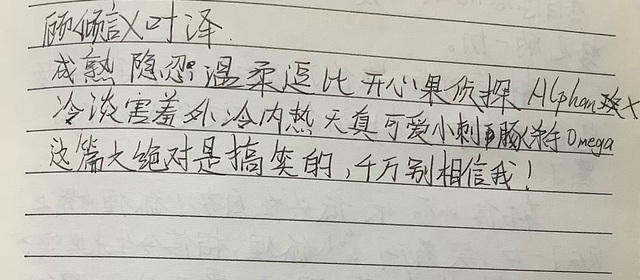 顾倾言X叶泽
成熟隐忍温柔逗比开心果侦探Alphaa攻X
冷淡害羞外冷内热天真可爱小刺豚杀手Omega
这篇文绝对是搞笑的，千万别相信我！